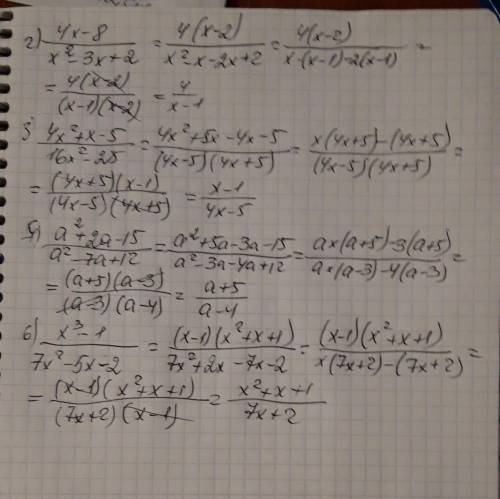 2) (4x-8)/(x²-3x+2) = 4(x-2)/(x²-x-2x+2) = 4(x-2)/(x·(x-1)-2(x-1)) =
= 4(x-2)/((x-1)(x-2)) = 4/(x-1)
3) (4x²+x-5)/(16x²-25) = (4x²+5x-4x-5)/((4x-5)(4x+5)) = (x(4x+5)-(4x+5))/((4x-5)(4x+5)) =
= ((4x+5)(x-1))/((4x-5)(4x+5)) = (x-1)/(4x-5)
5) (a²+2a-15)/(a²-7a+12) = (a²+5a-3a-15)/(a²-3a-4a+12) = (a×(a+5)-3(a+5))/(a×(a-3)-4(a-3)) =
= ((a+5)(a-3))/((a-3)(a-4)) = (a+5)/(a-4)
6) (x³-1)/(7x²-5x-2) = ((x-1)(x²+x+1))/(7x²+2x-7x-2) = ((x-1)(x²+x+1))/(x(7x+2)-(7x+2)) =
= ((x-1)(x²+x+1))/((7x+2)(x-1)) = (x²+x+1)/(7x+2)